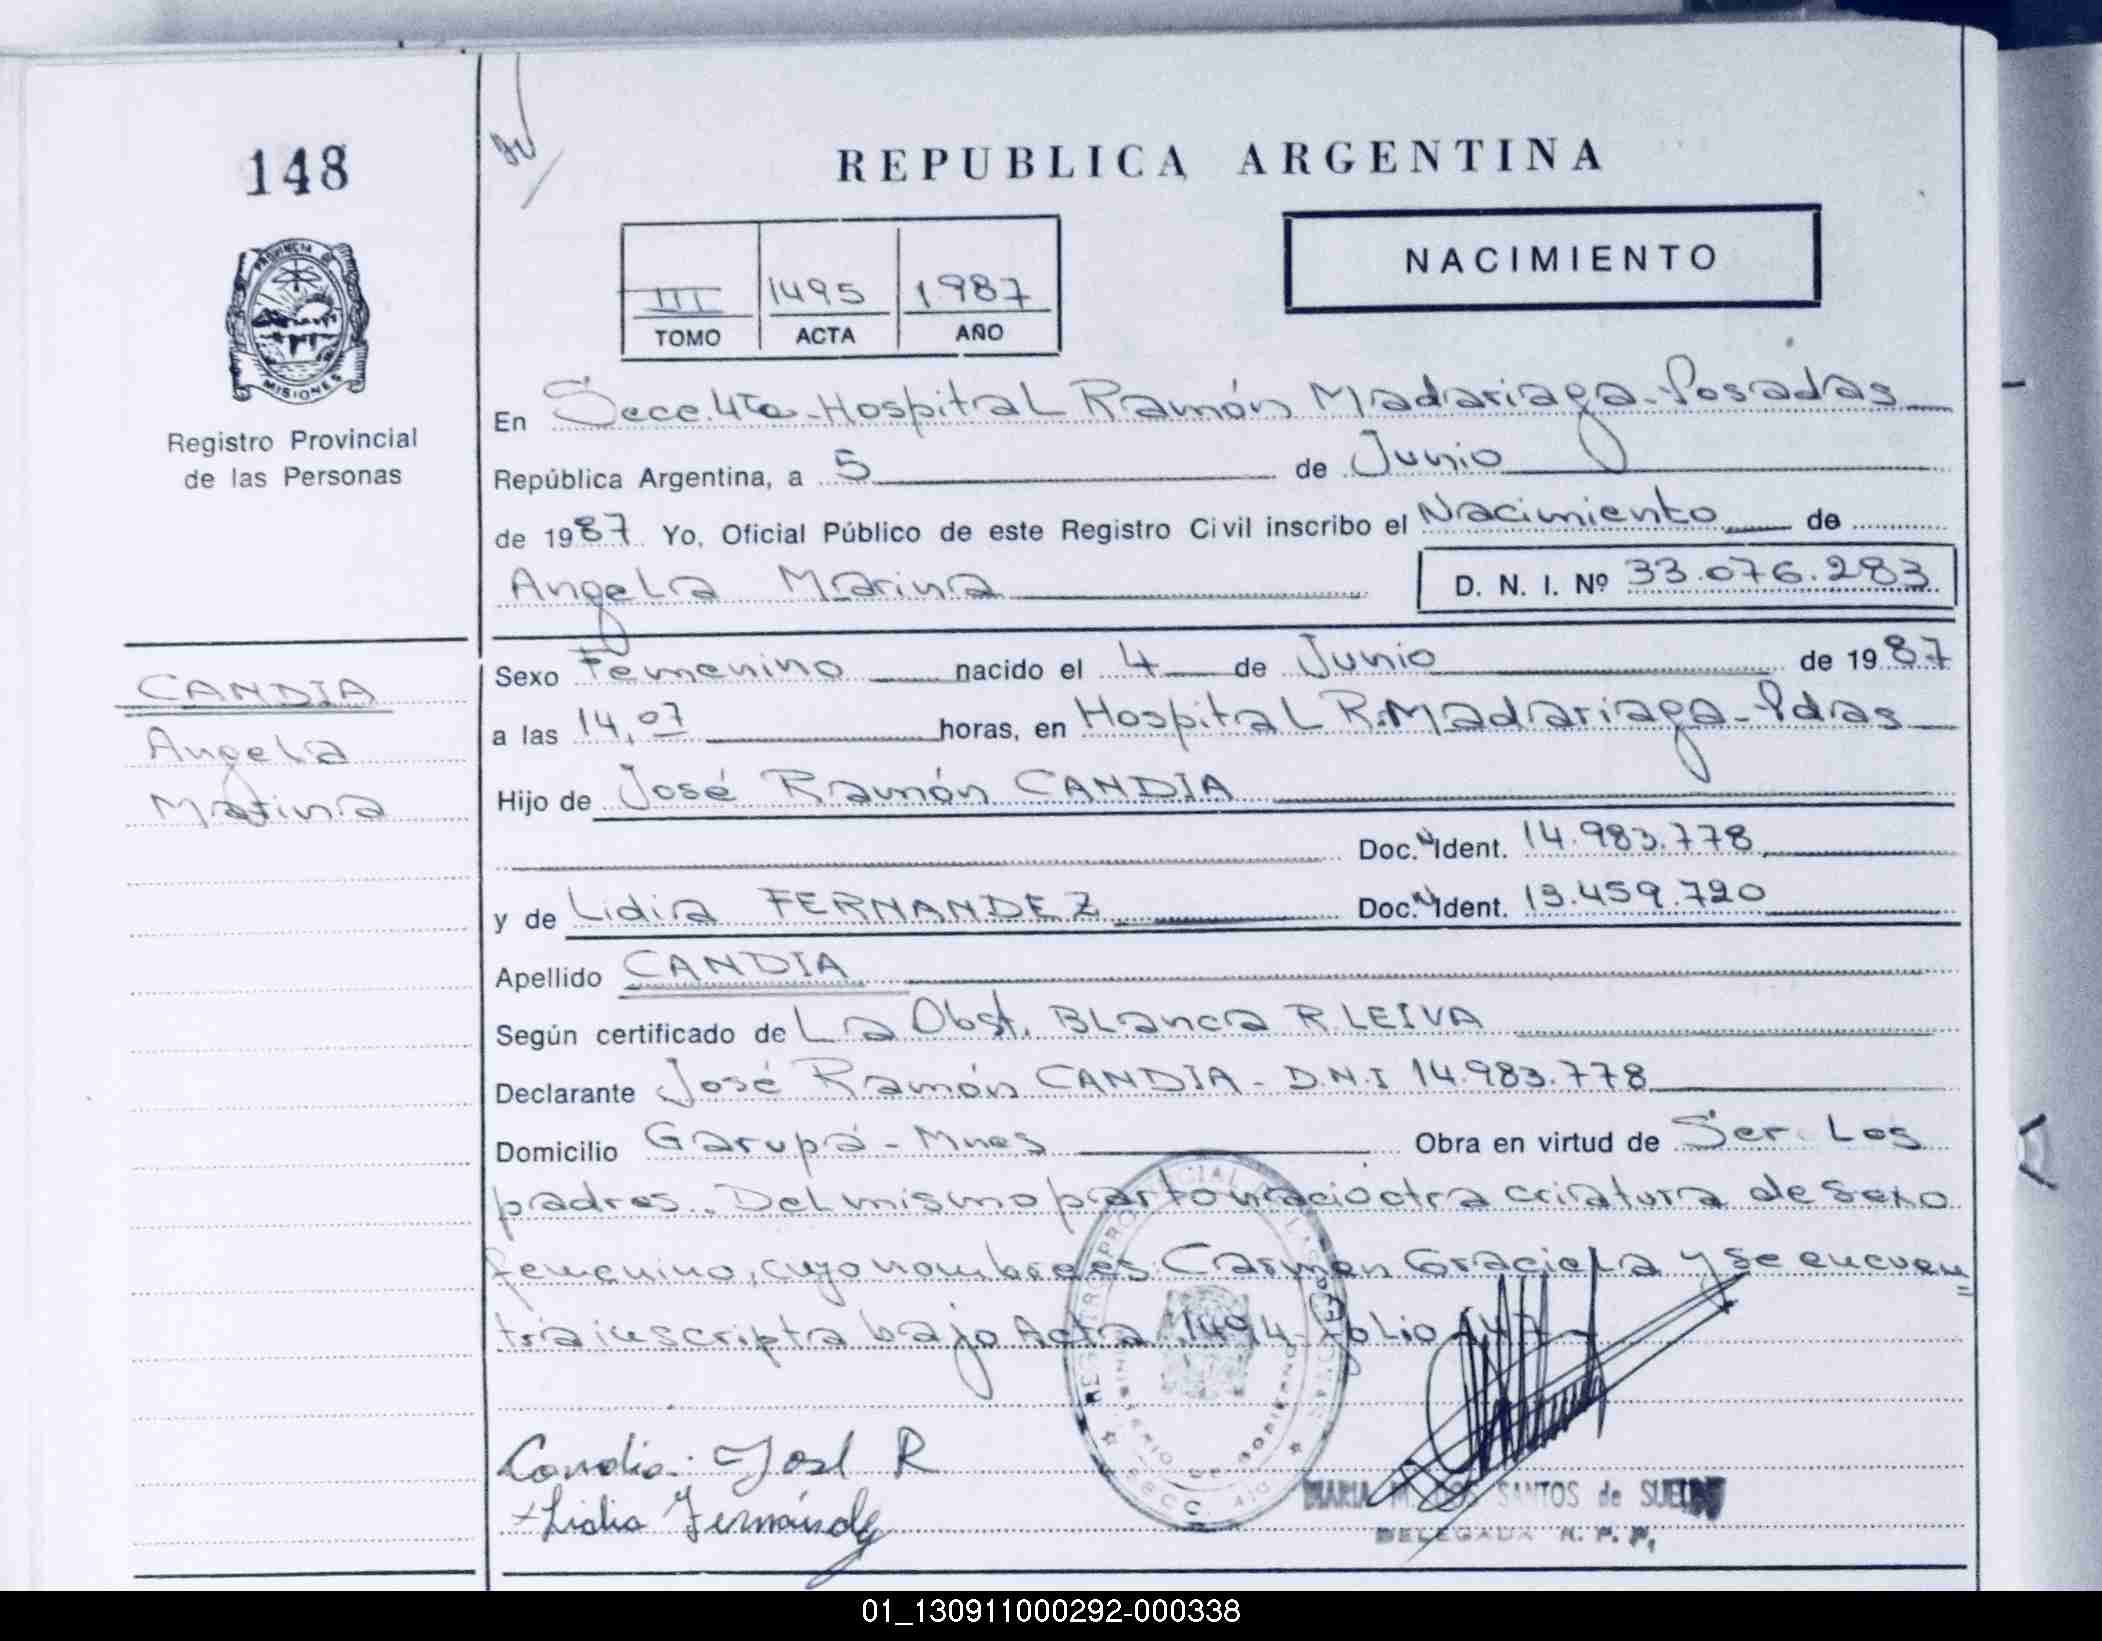 148
REPUBLICA ARGENTINA
PROVINCIA DE
MISIONES
Registro Provincial
de las Personas
NACIMIENTO
III 1495 1987
TOMO ACTA AÑO
En Secc. 4ta - Hospital Ramón Madariaga - Posadas
República Argentina, a 5 de Junio
de 1987 Yo, Oficial Público de este Registro Civil inscribo el Nacimiento de
Angela Marina
D. N. I. Nº 33.076.283
CANDIA
Angela
Marina
Sexo Femenino nacido el 4 de Junio de 1987
a las 14,07 horas, en Hospital R. Madariaga - Pdas
Hijo de José Ramón CANDIA
Doc. N Ident. 14.983.778
y de Lidia FERNANDEZ Doc. N Ident. 13.459.720
Apellido CANDIA
Según certificado de La Obst. Blanca R. LEIVA
Declarante José Ramón CANDIA - D.N.I 14.983.778
Domicilio Garupá - Mnes Obra en virtud de Ser Los
padres. Del mismo parto nació otra criatura de sexo
femenino, cuyo nombre es Carmen Graciela y se encuen=
tra inscripta bajo Acta 1494 - folio 147 -
Candia José R
Lidia Fernández
MARIA M. LOS SANTOS de
DELEGADA R. P. P.
01_130911000292-000338